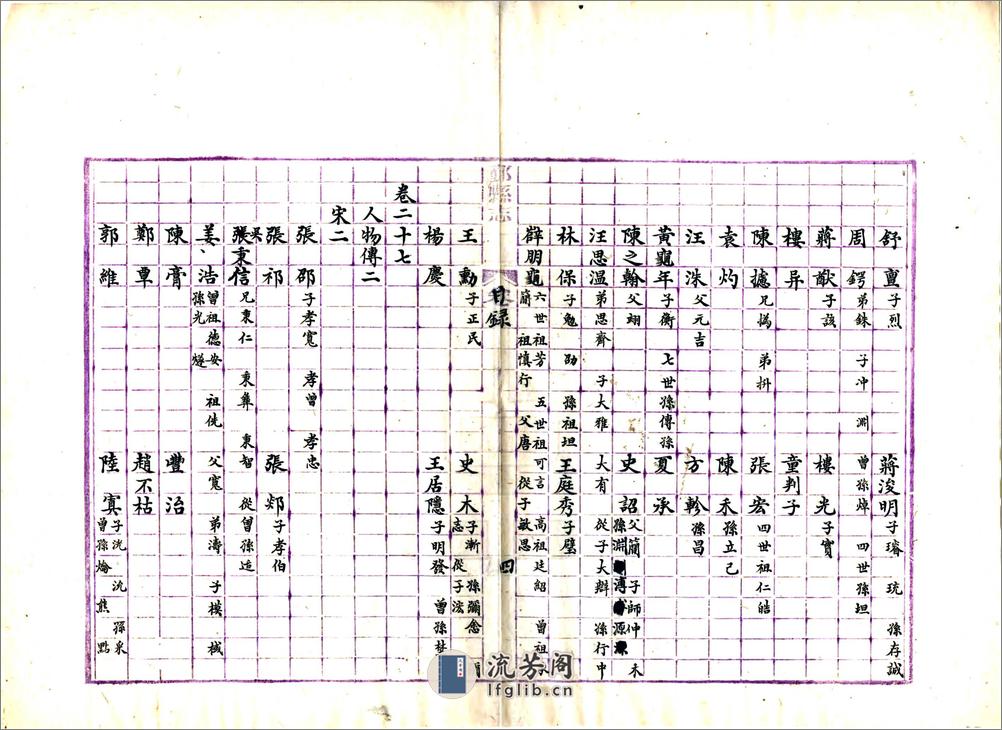 舒亶 子烈 蔣浚明 子璿 珫 孫存誠
周鍔 弟銖 子沖 淵 曾孫焯 四世孫坦
蔣猷 子詼 樓光 子寶
樓异 童判子
陳摅 兄撝 弟抖 張宏 四世祖仁皓
袁灼 陳禾 孫立己
汪洙 父元吉 方軫 孫昌
黃龜年 子衡 七世孫傳孫 夏承
陳之翰 父翊 史詔 父簡 子師仲 木 孫淵 溥 源
汪思溫 弟思齊 子大雅 大有 從子大辯 孫行中
林保 子勉 劭 孫祖坦 王庭秀 子璧
薛朋龜 六世祖芳 五世祖可言 高祖廷紹 曾祖 簡 祖慎行 父唐 從子敏思
鄞縣志
目錄
四
王勳 子正民 史木 子漸 孫彌悆 志 從子浚
楊慶 王居隱 子明發 曾孫
卷二十七
人物傳二
宋二
張邵 子孝寬 孝曾 孝忠
張祁 張郯 子孝伯
吳秉信 兄秉仁 秉彝 秉智 從曾孫适
姜浩 曾祖德安 祖侁 父寬 弟濤 子模 棫 孫光 燧
陳膏 豐治
鄭覃 趙不枯
郭維 陸寘 子沇 沆 孫采 曾孫爚 熊 點
流芳阁
lfglib.cn